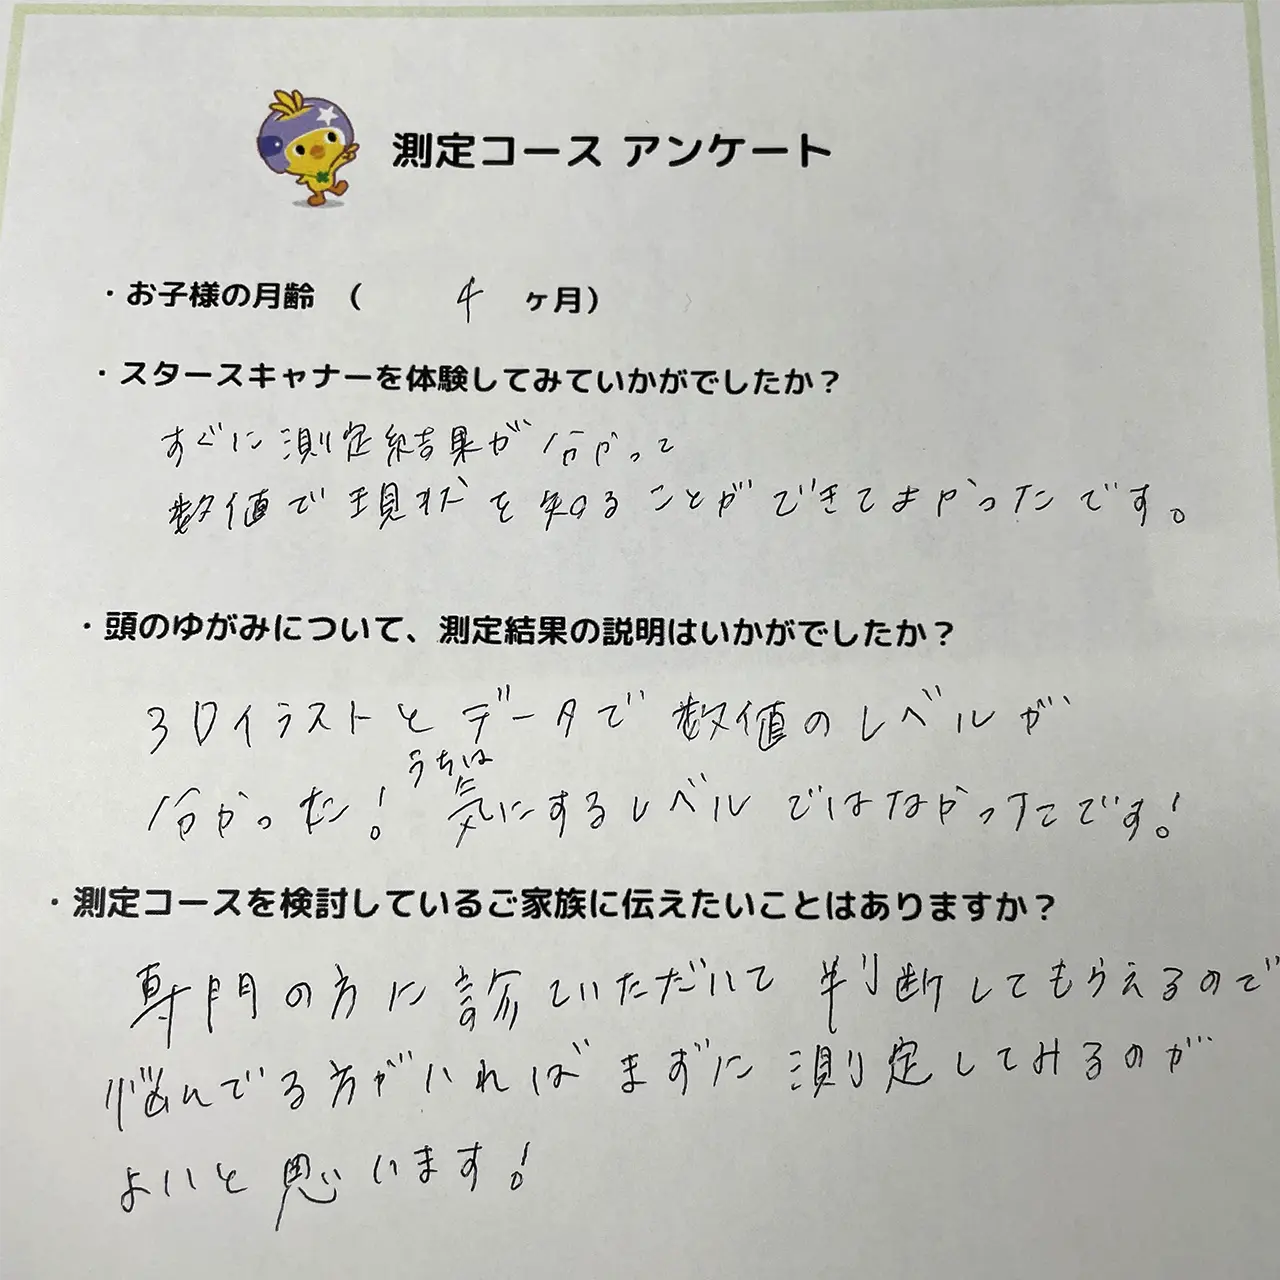 測定コース アンケート
・お子様の月齢 ( 4 ヶ月)
・スタースキャナーを体験してみていかがでしたか？
すぐに測定結果が分かって
数値で現状を知ることができてよかったです。
・頭のゆがみについて、測定結果の説明はいかがでしたか？
3Dイラストとデータで数値のレベルが
うちは
分かった！ 気にするレベルではなかったです！
・測定コースを検討しているご家族に伝えたいことはありますか？
専門の方に診ていただいて判断してもらえるので
悩んでる方がいればまずに測定してみるのが
よいと思います！